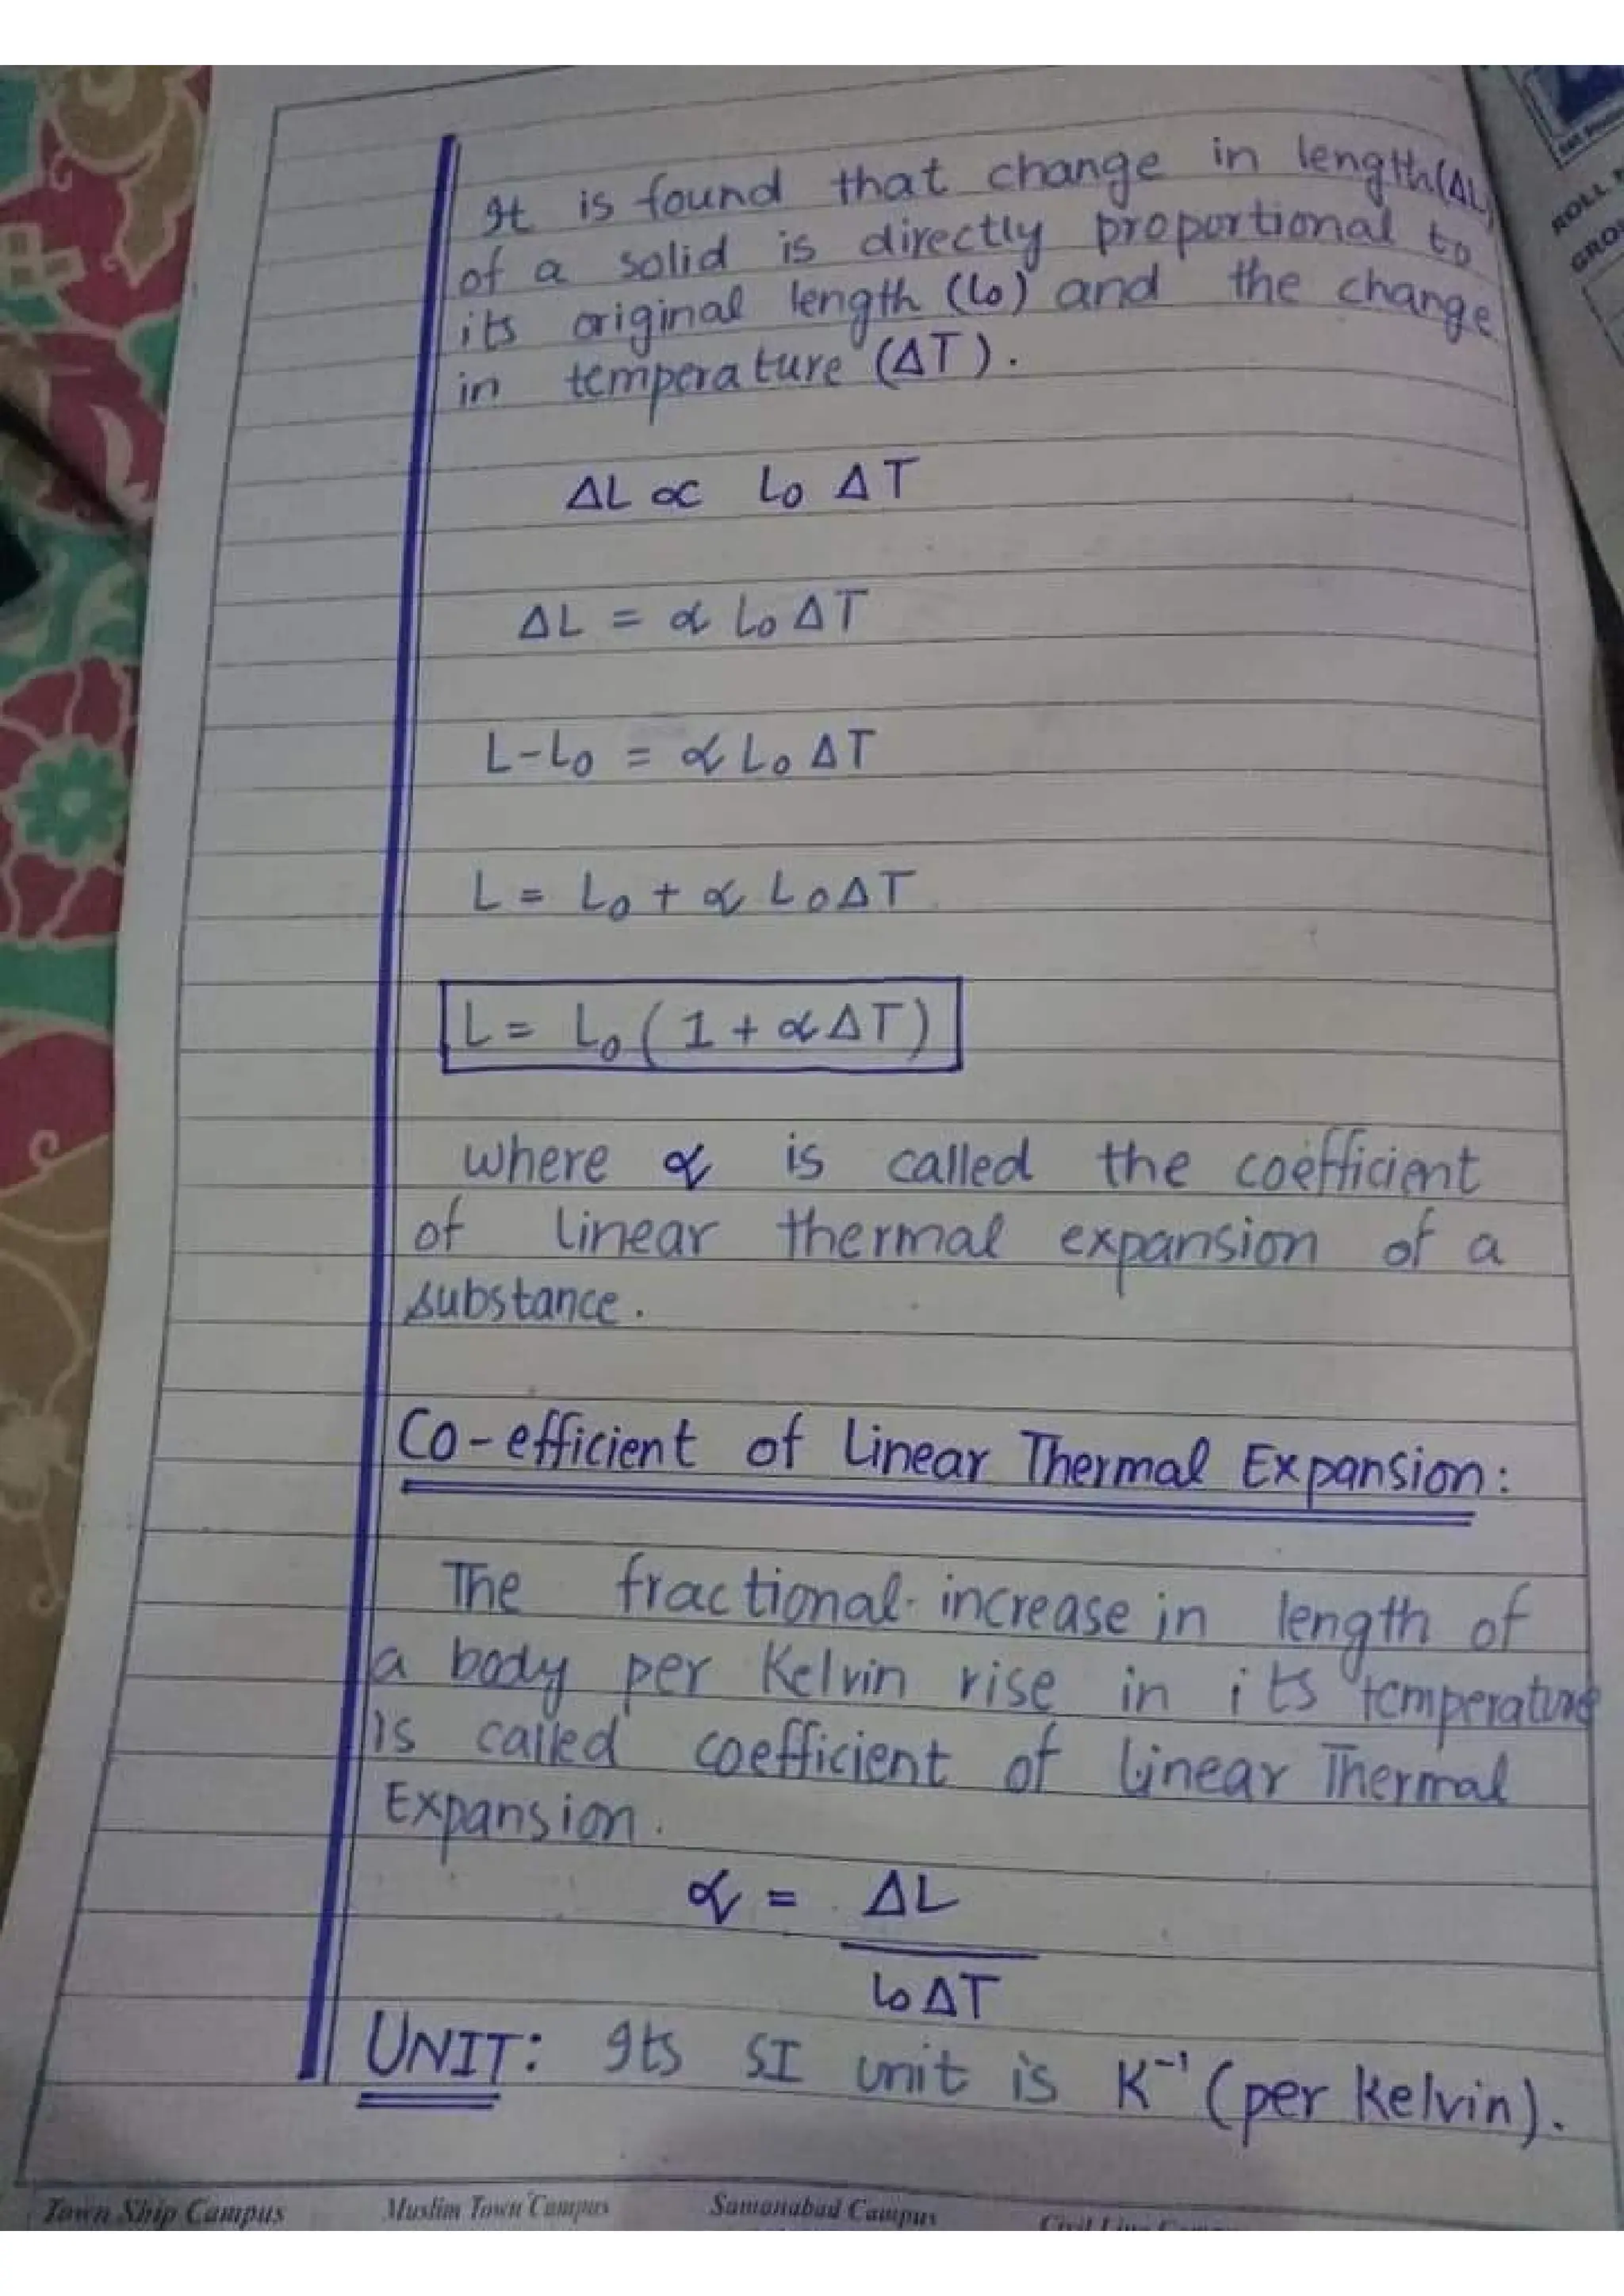 It is found that change in length(ΔL)
of a solid is directly proportional to
its original length (Lo) and the change
in temperature (ΔT).
ΔL ∝ Lo ΔT
ΔL = α Lo ΔT
L-Lo = α Lo ΔT
L = Lo + α LoΔT
L = Lo ( 1 + αΔT)
where α is called the coefficient
of linear thermal expansion of a
substance.
Co-efficient of Linear Thermal Expansion:
The fractional increase in length of
a body per Kelvin rise in its temperature
is called coefficient of Linear Thermal
Expansion.
α = ΔL
LoΔT
UNIT: Its SI unit is K⁻¹ (per Kelvin).
Town Ship Campus Muslim Town Campus Samanabad Campus
ROLL
GRO